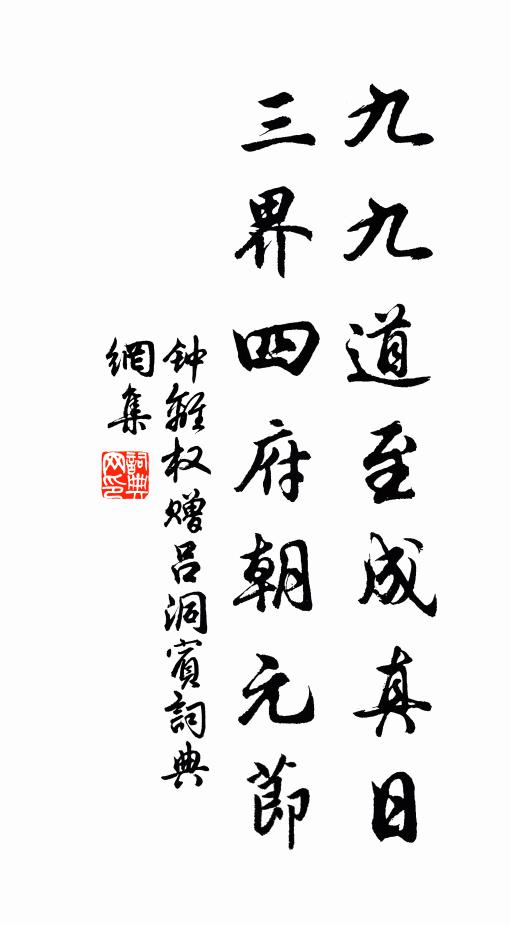 九九道至成真日
三界四府朝元節
钟離权赠吕洞賓詞典
網集
詞典
网印